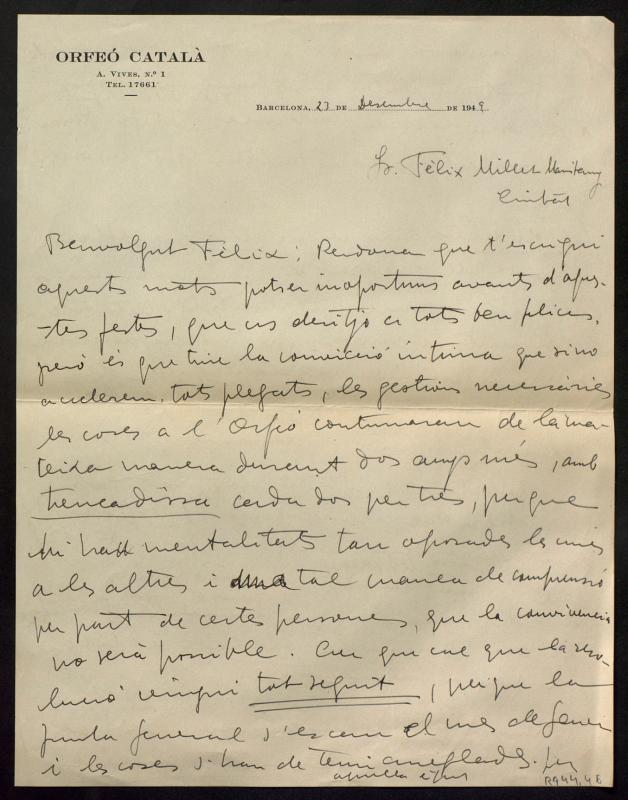 ORFEÓ CATALÀ
A. VIVES, N.º 1
TEL. 17661
BARCELONA, 23 DE Desembre DE 1949
Sr. Fèlix Millet Maristany
Ciutat
Benvolgut Fèlix: Perdona que t'escrigui
aquests mots potser inoportuns avants d'aques-
-tes festes, que us desitjo a tots ben felices,
però és que tinc la convicció íntima que sino
accelerem, tots plegats, les gestions necessàries
les coses a l'Orfeó continuaran de la ma-
teixa manera durant dos anys més, amb
trencadissa cada dos per tres, perque
hi ha mentalitats tan oposades les unes
a les altres i tal manca de comprensió
per part de certes persones, que la convivencia
no serà possible. Crec que cal que la reso-
lució vingui tot seguit, perque la
Junta General s'escau el mes de Gener
i les coses s'han de tenir arreglades. per
aquella
R944,4B